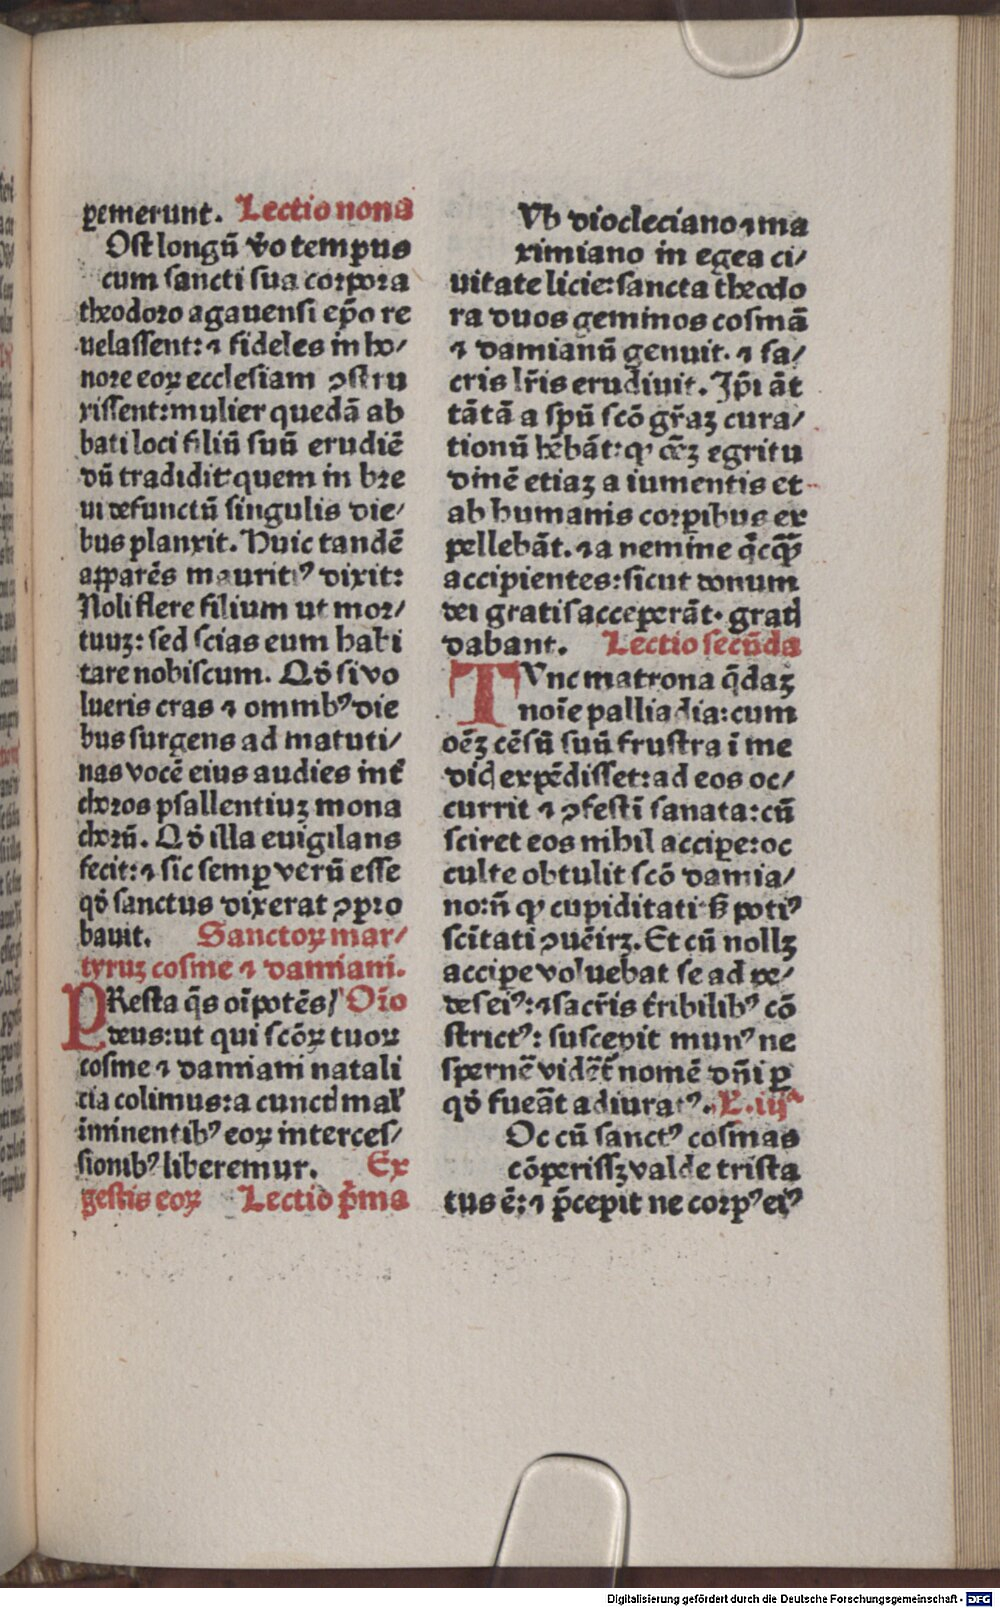 ꝑemerunt. Lectio nona
Ost longū v̄o tempus
cum sancti sua corpora
theodoro agauensi ep̄o re
uelassent: ⁊ fideles in ho/
nore eoꝝ ecclesiam ꝯstru
xissent: mulier quedā ab
bati loci filiū suū erudiē
dū tradidit: quem in bre
ui defunctū singulis die/
bus planxit. Huic tandē
apparēs mauriti⁹ dixit:
Noli flere filium ut mor/
tuuꝫ: sed scias eum habi
tare nobiscum. Qđ si vo
lueris cras ⁊ omnib⁹ die
bus surgens ad matuti/
nas vocē eius audies int̄
choros psallentiuꝫ mona
choꝝ. Qđ illa euigilans
fecit: ⁊ sic semꝑ verū esse
qđ sanctus dixerat ꝯpro
bauit. Sanctoꝝ mar/
tyruꝫ cosme ⁊ damiani.
PResta q̄s oīpotēs Or̄o
deus: ut qui scōꝝ tuoꝝ
cosme ⁊ damiani natali
cia colimus: a cunctis mal̄
iminentib⁹ eoꝝ interces/
sionib⁹ liberemur. Ex
gestis eoꝝ Lectio p̄ma
Vb diocleciano ⁊ ma
ximiano in egea ci/
uitate licie: sancta theodo
ra duos geminos cosmā
⁊ damianū genuit. ⁊ sa/
cris lr̄is erudiuit. Ip̄i āt
tātā a spū scō gr̄aꝫ cura/
tionū hēbāt: ꝙ oēꝫ egritu
dinē etiaꝫ a iumentis et
ab humanis corpibus ex
pellebāt. ⁊ a nemine q̄cq̄ꝫ
accipientes: sicut donum
dei gratis acceperāt. gratis
dabant. Lectio secūda
TVnc matrona q̄daꝫ
noīe palliadia: cum
oēꝫ cēsū suū frustra ī me
dicis expēdisset: ad eos oc/
currit ⁊ ꝯfestī sanata: cū
sciret eos nihil accipe: oc
culte obtulit scō damia/
no: n̄ ꝙ cupiditati sꝫ poti⁹
scītati ꝯuēirꝫ. Et cū nollꝫ
accipe voluebat se ad pe/
des ei⁹: ⁊ sacr̄is t̄ribilib⁹ cō
strict⁹: suscepit mun⁹ ne
spernē vidēt̄ nomē dn̄i ꝑ
qđ fueāt adiurat⁹. L. iijᵃ
Oc cū sanct⁹ cosmas
cōperissꝫ valde trista
tus ē: ⁊ p̄cepit ne corp⁹ ei⁹
Digitalisierung gefördert durch die Deutsche Forschungsgemeinschaft - DFG